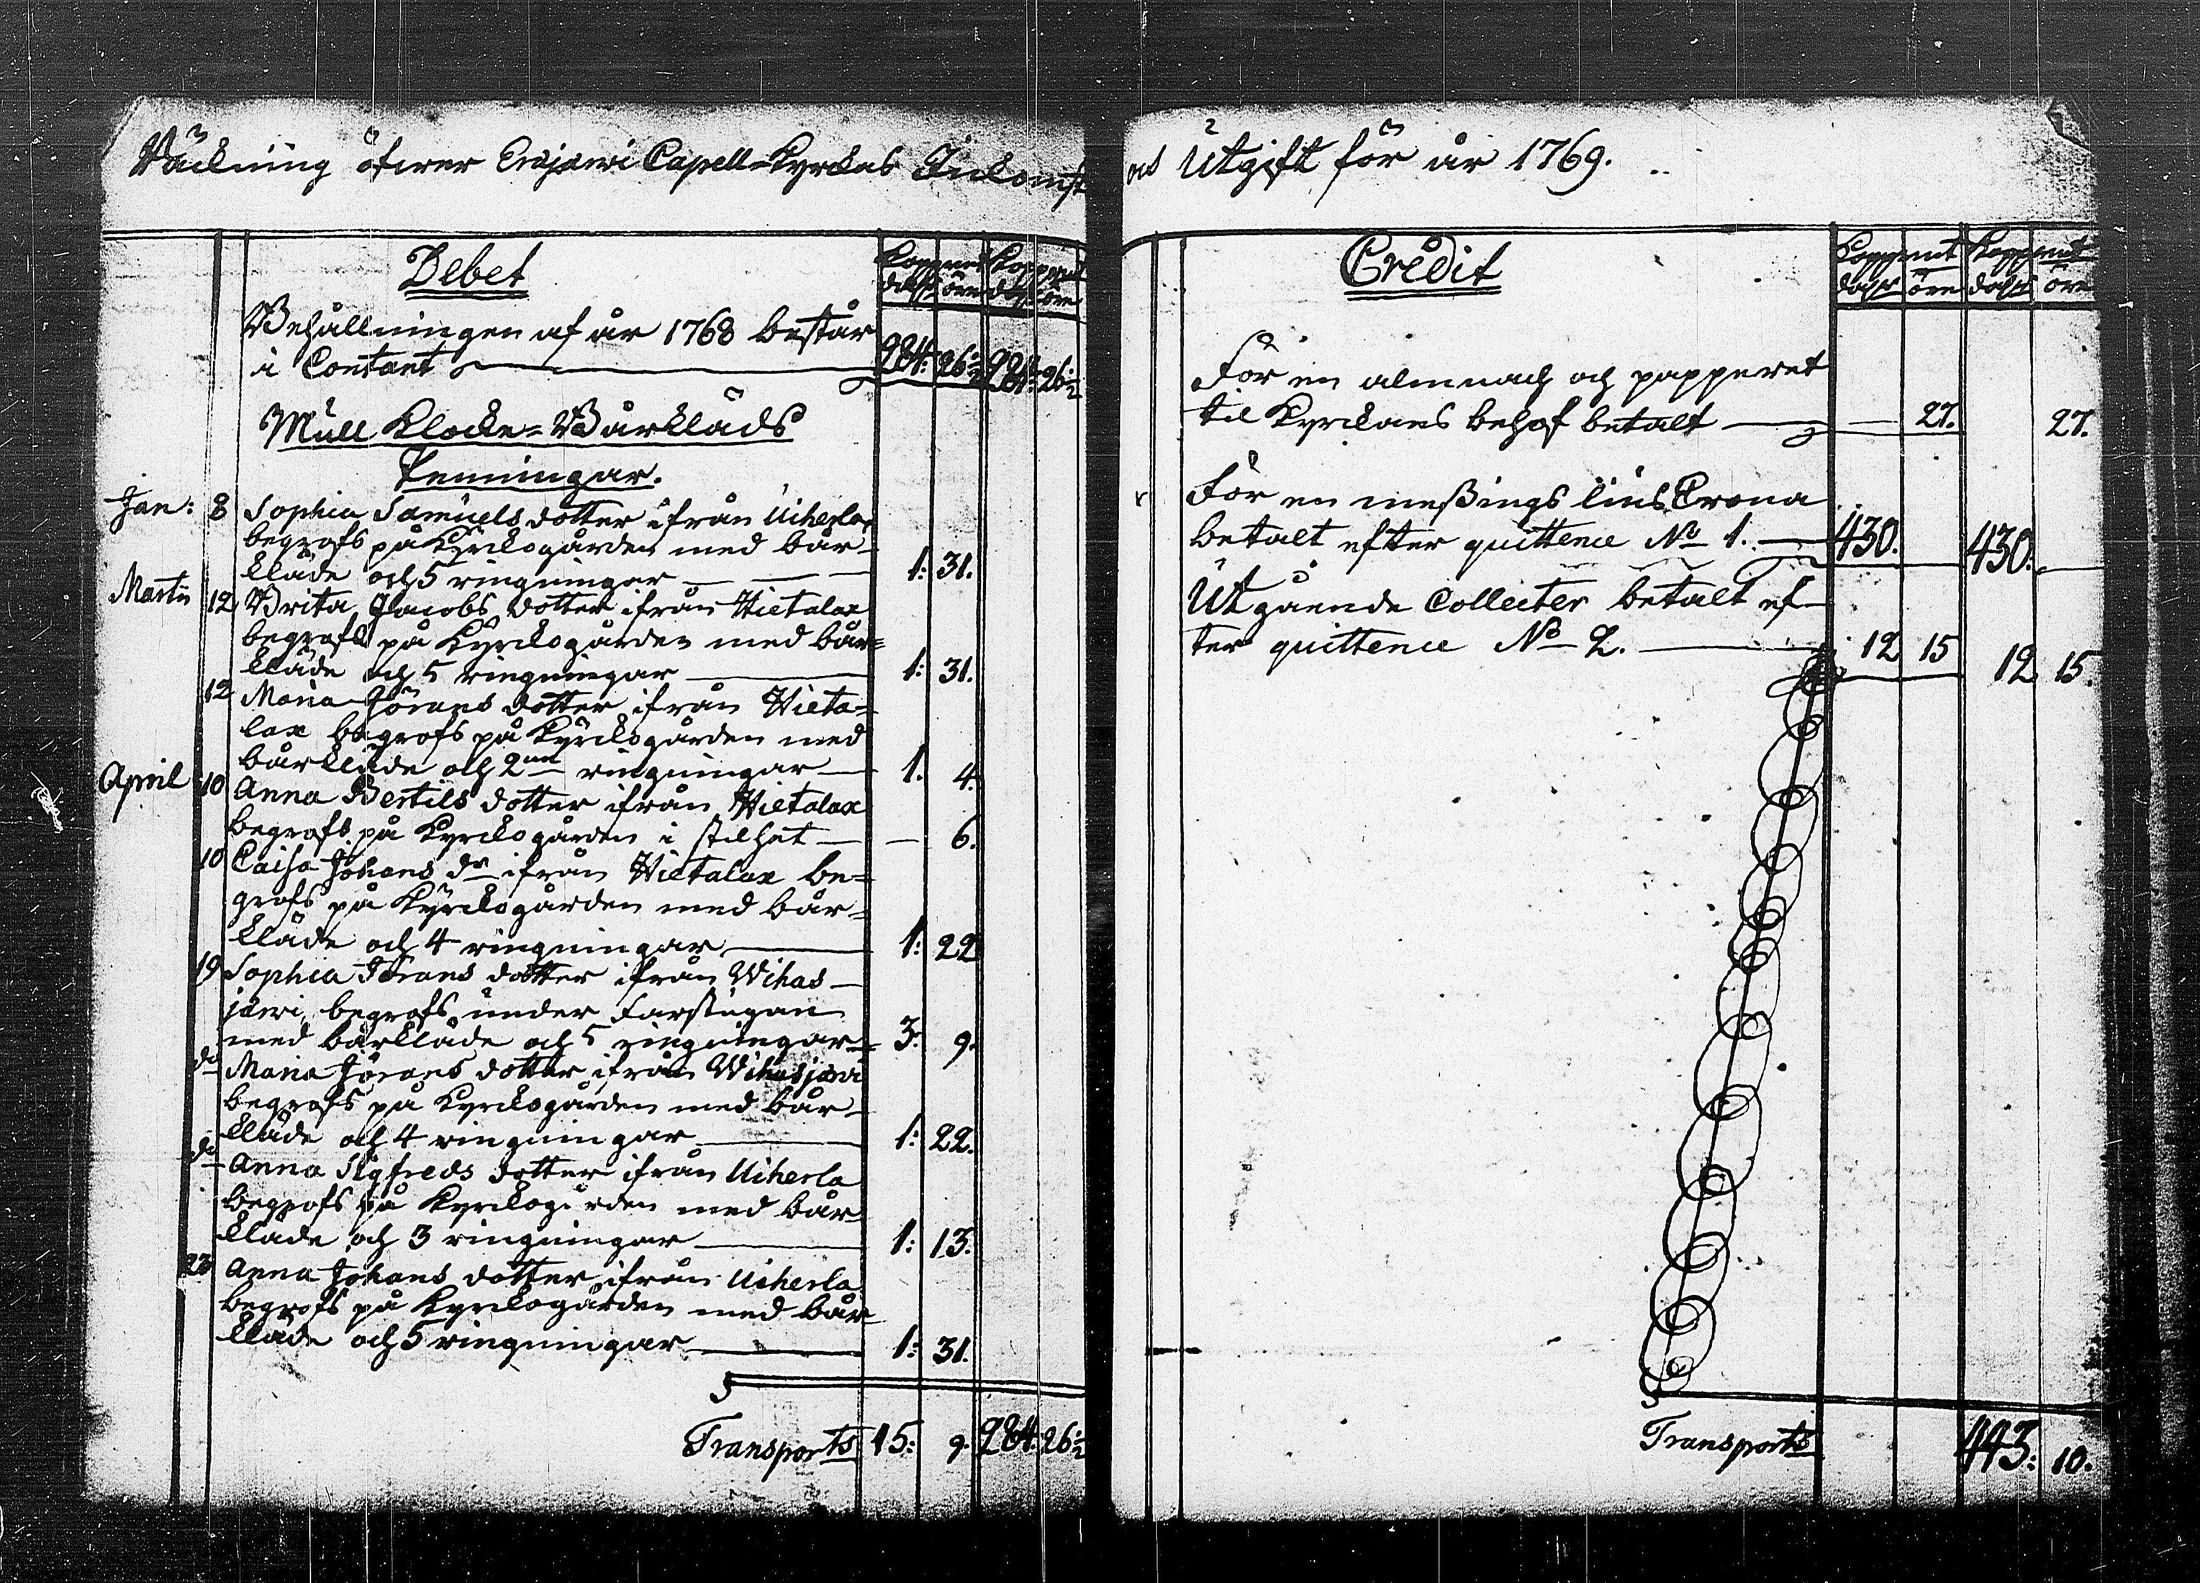 Räckning öfwer Erajärwi Capell-Kyrckas Inkomst
och Utgift för år 1769.
Debet
Kopp:mt Kopp:mt
dahlr öre dahlr öre
Behållningen af år 1768 består
i Contant 284: 26 1/2 284: 26 1/2
Mull Klocke- Bårkläds
Penningar.
Jan: 8 Sophia Samuels dotter ifrån Uiherla
begrofs på Kyrckogården med bår-
kläde och 5 ringningar 1: 31.
Martii 12 Brita Jacobs dotter ifrån Hietalax
begrofs på Kyrckogården med bår=
kläde och 5 ringningar 1: 31.
12 Maria Görans dotter ifrån Hieta=
lax begrofs på Kyrckogården med
bårkläde och 2ne ringningar 1. 4.
April 10 Anna Bertils dotter ifrån Hietalax
begrofs på Kyrckogården i stilhet — 6.
10 Caisa Johans dr ifrån Hietalax be=
grofs på Kyrckogården med bår=
kläde och 4 ringningar 1: 22
19 Sophia Jörans dotter ifrån Wihas-
järwi, begrofs under Farstugan
med bårkläde och 5 ringningar 3: 9.
do Maria Jörans dotter ifrån Wihasjärwi
begrofs på Kyrckogården med bår-
kläde och 4 ringningar 1: 22.
do Anna Sigfreds dotter ifrån Uiherla
begrofs på Kyrckogården med bår
kläde och 3 ringningar 1: 13.
23 Anna Johans dotter ifrån Uiherla
begrofs på Kyrckogården med bår-
kläde och 5 ringningar 1: 31.
Transports 15: 9. 284: 26 1/2
Credit
Koppmt Koppmt
dahlr öre dahlr öre
För en almnach och papperet
til Kyrckans behof betalt — 27. 27.
För en meßings lius Crona
betalt efter quittence No 1. 430. 430.
Utgående Collecter betalt ef-
ter quittence No 2. 12 15 12 15.
Transports 443: 10.